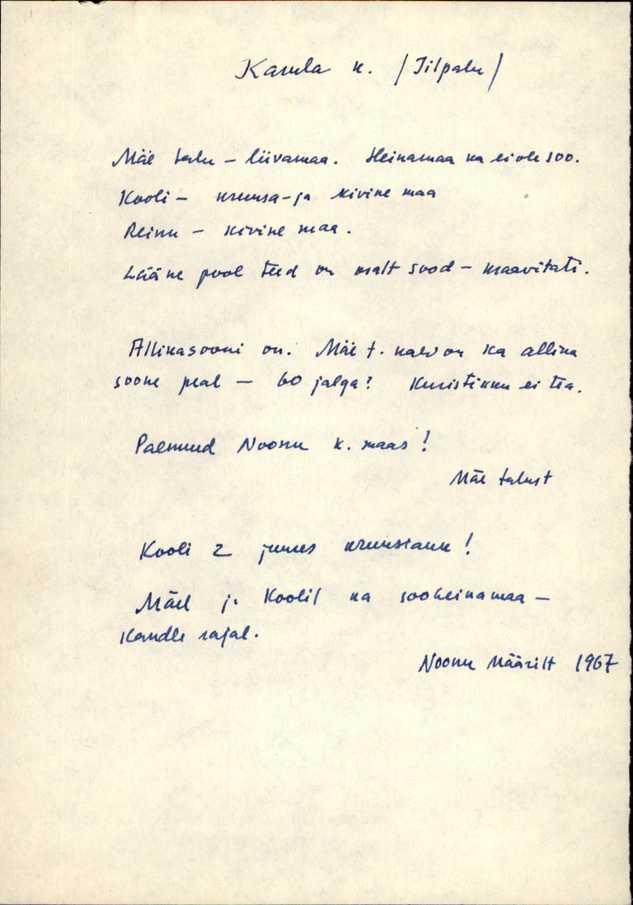 Karula k. /Tilpalu/
Mäe talu – liivamaa. Heinamaa ka ei ole soo.
Kooli – kruusa- ja kivine maa
Reinu – kivine maa.
Lääne pool teed on osalt sood – maavitati.
Allikasooni on. Mäe t. kaev on ka allika
soone peal – 60 jalga! Kuristikku ei tea.
Paemuud Noonu k. maas!
Mäe talust
Kooli 2 juures kruusiauk!
Mäel ja Koolil ka sooheinamaa –
Kandle rajal.
Noonu Määrilt 1967